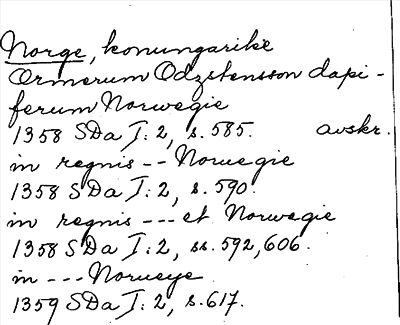 Norge, konungarike
Ormerum Odzstensson dapi-
ferum Norwegie
1358 SDa I:2, s. 585. avskr.
in regnis -- Norwegie
1358 SDa I:2, s. 590.
in regnis --- et Norwegie
1358 SDa I:2, ss. 592, 606.
in --- Norueye
1359 SDa I:2, s. 617.